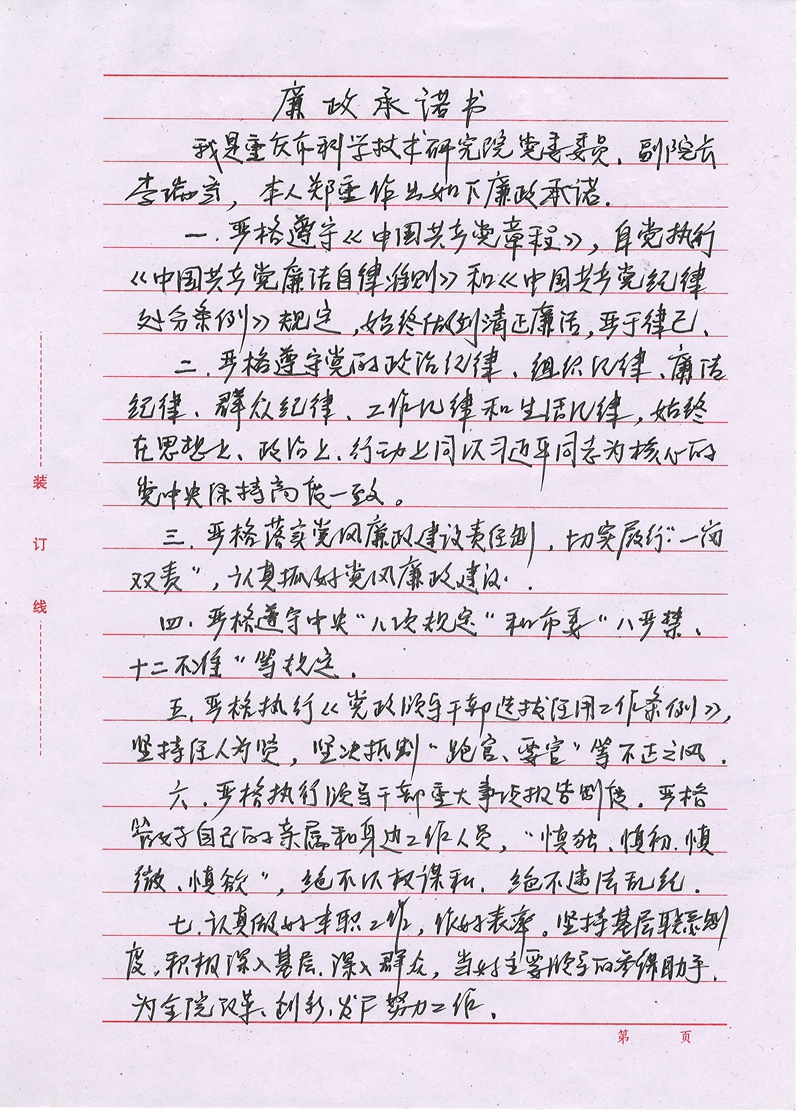 廉政承诺书
我是重庆市科学技术研究院党委委员、副院长
李瑞，本人郑重作出如下廉政承诺.
一、严格遵守《中国共产党章程》，自觉执行
《中国共产党廉洁自律准则》和《中国共产党纪律
处分条例》规定，始终做到清正廉洁，严于律己、
二、严格遵守党的政治纪律、组织纪律、廉洁
纪律、群众纪律、工作纪律和生活纪律，始终
在思想上、政治上、行动上同以习近平同志为核心的
党中央保持高度一致。
三、严格落实党风廉政建设责任制，切实履行“一岗
双责”，认真抓好党风廉政建设.
四、严格遵守中央“八项规定”和市委“八严禁、
十二不准”等规定.
五、严格执行《党政领导干部选拔任用工作条例》，
坚持任人为贤，坚决抵制“跑官、要官”等不正之风.
六、严格执行领导干部重大事项报告制度.严格
管好自己的亲属和身边工作人员，“慎独、慎初、慎
微、慎欲”，绝不以权谋私、绝不违法乱纪.
七、认真做好本职工作，作好表率。坚持基层联系制
度，积极深入基层、深入群众，当好主要领导的参谋助手，
为全院改革、创新、发展努力工作.
装
订
线
第 页